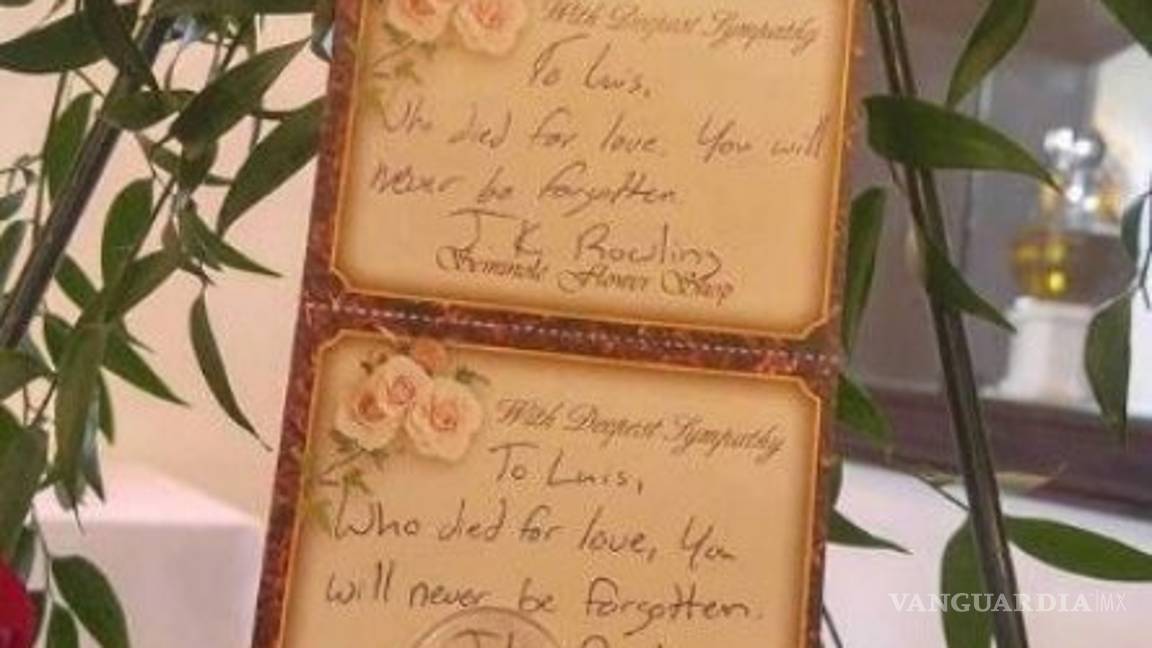 With Deepest Sympathy
To Luis,
Who died for love. You will
never be forgotten
J.K. Rowling
Seminole Flower Shop
With Deepest Sympathy
To Luis,
Who died for love, You
will never be forgotten.
VANGUARDIA|MX